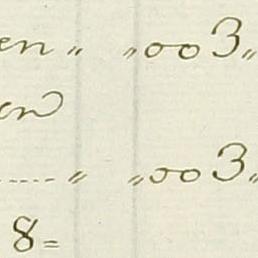 en " "003"
en
..... " "003"
8=